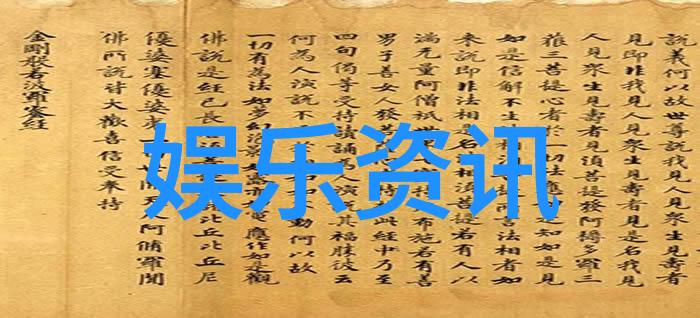 說義何以故世尊說我見人見眾生見壽者
見即非我見人見眾生見壽者見是名我見
人見眾生見壽者見須菩提發阿耨多羅三
藐三菩提心者於一切法應如是知如是見
如是信解不生法相言法相者如
來說即非法相是名相須菩提若有人以
滿无量阿僧祇世布施若有善
男子善女人發菩此經乃至
四句偈等受持讀誦為人演說其福勝彼云
何為人演說不動何以故
一切有為法如夢幻電應作如是觀
佛說是經已長老比丘比丘尼
優婆塞優婆夷世間天人阿脩羅聞
佛所說皆大歡喜信受奉持
金剛般若波羅蜜經
娱乐资讯